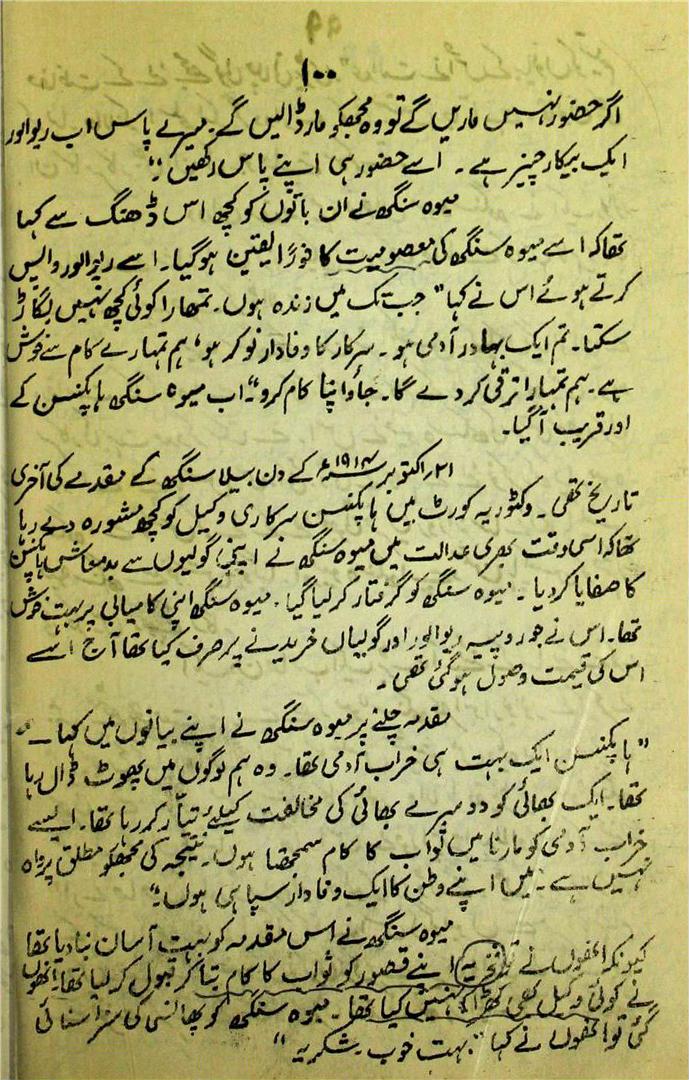 ۱۰۰
اگر حضور نہیں ماریں گے تو وہ مجھکو مار ڈالیں گے۔ میرے پاس اب ریوالور
ایک بیکار چیز ہے۔ اسے حضور ہی اپنے پاس رکھیں"۔
میوہ سنگھ نے ان باتوں کو کچھ اس ڈھنگ سے کہا
تھا کہ اسے میوہ سنگھ کی معصومیت کا فوراً یقین ہوگیا۔ اسے ریوالور واپس
کرتے ہوئے اس نے کہا "جب تک میں زندہ ہوں۔ تمھارا کوئی کچھ نہیں بگاڑ
سکتا۔ تم ایک بہادر آدمی ہو۔ سرکار کا وفادار نوکر ہو، ہم تمہارے کام سے خوش
ہے۔ ہم تمہارا ترقی کر دے گا۔ جاؤ اپنا کام کرو"۔ اب میوہ سنگھ ہاپکنسن کے
اور قریب آگیا۔
۲۱ اکتوبر ۱۹۱۴ء کے دن بیلا سنگھ کے مقدمے کی آخری
تاریخ تھی۔ وکٹوریہ کورٹ میں ہاپکنسن سرکاری وکیل کو کچھ مشورہ دے رہا
تھا کہ اسی وقت بھری عدالت میں میوہ سنگھ نے اپنی گولیوں سے بدمعاش ہاپکنسن
کا صفایا کر دیا۔ میوہ سنگھ کو گرفتار کر لیا گیا۔ میوہ سنگھ اپنی کامیابی پر بہت خوش
تھا۔ اس نے جو روپیہ ریوالور اور گولیاں خریدنے پر صرف کیا تھا آج اسے
اس کی قیمت وصول ہو گئی تھی۔
مقدمہ چلنے پر میوہ سنگھ نے اپنے بیانوں میں کہا۔
"ہاپکنسن ایک بہت ہی خراب آدمی تھا۔ وہ ہم لوگوں میں پھوٹ ڈال رہا
تھا۔ ایک بھائی کو دوسرے بھائی کی مخالفت کیلئے تیار کر رہا تھا۔ ایسے
خراب آدمی کو مارنا میں ثواب کا کام سمجھتا ہوں۔ نتیجہ کی مجھکو مطلق پرواہ
نہیں ہے۔ میں اپنے وطن کا ایک وفادار سپاہی ہوں"۔
میوہ سنگھ نے اس مقدمہ کو بہت آسان بنا دیا تھا
کیونکہ انھوں نے فخریہ اپنے قصور کو ثواب کا کام بتا کر قبول کر لیا تھا۔ انھوں
نے کوئی وکیل بھی کھڑا نہیں کیا تھا۔ میوہ سنگھ کو پھانسی کی سزا سنائی
گئی تو انھوں نے کہا "بہت خوب۔ شکریہ"